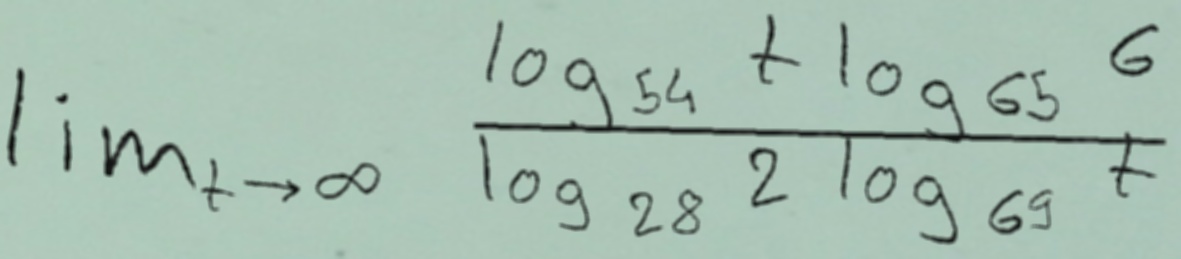 lim_{t→∞} \frac{log_{54} t log_{65} 6}{log_{28} 2 log_{69} t}